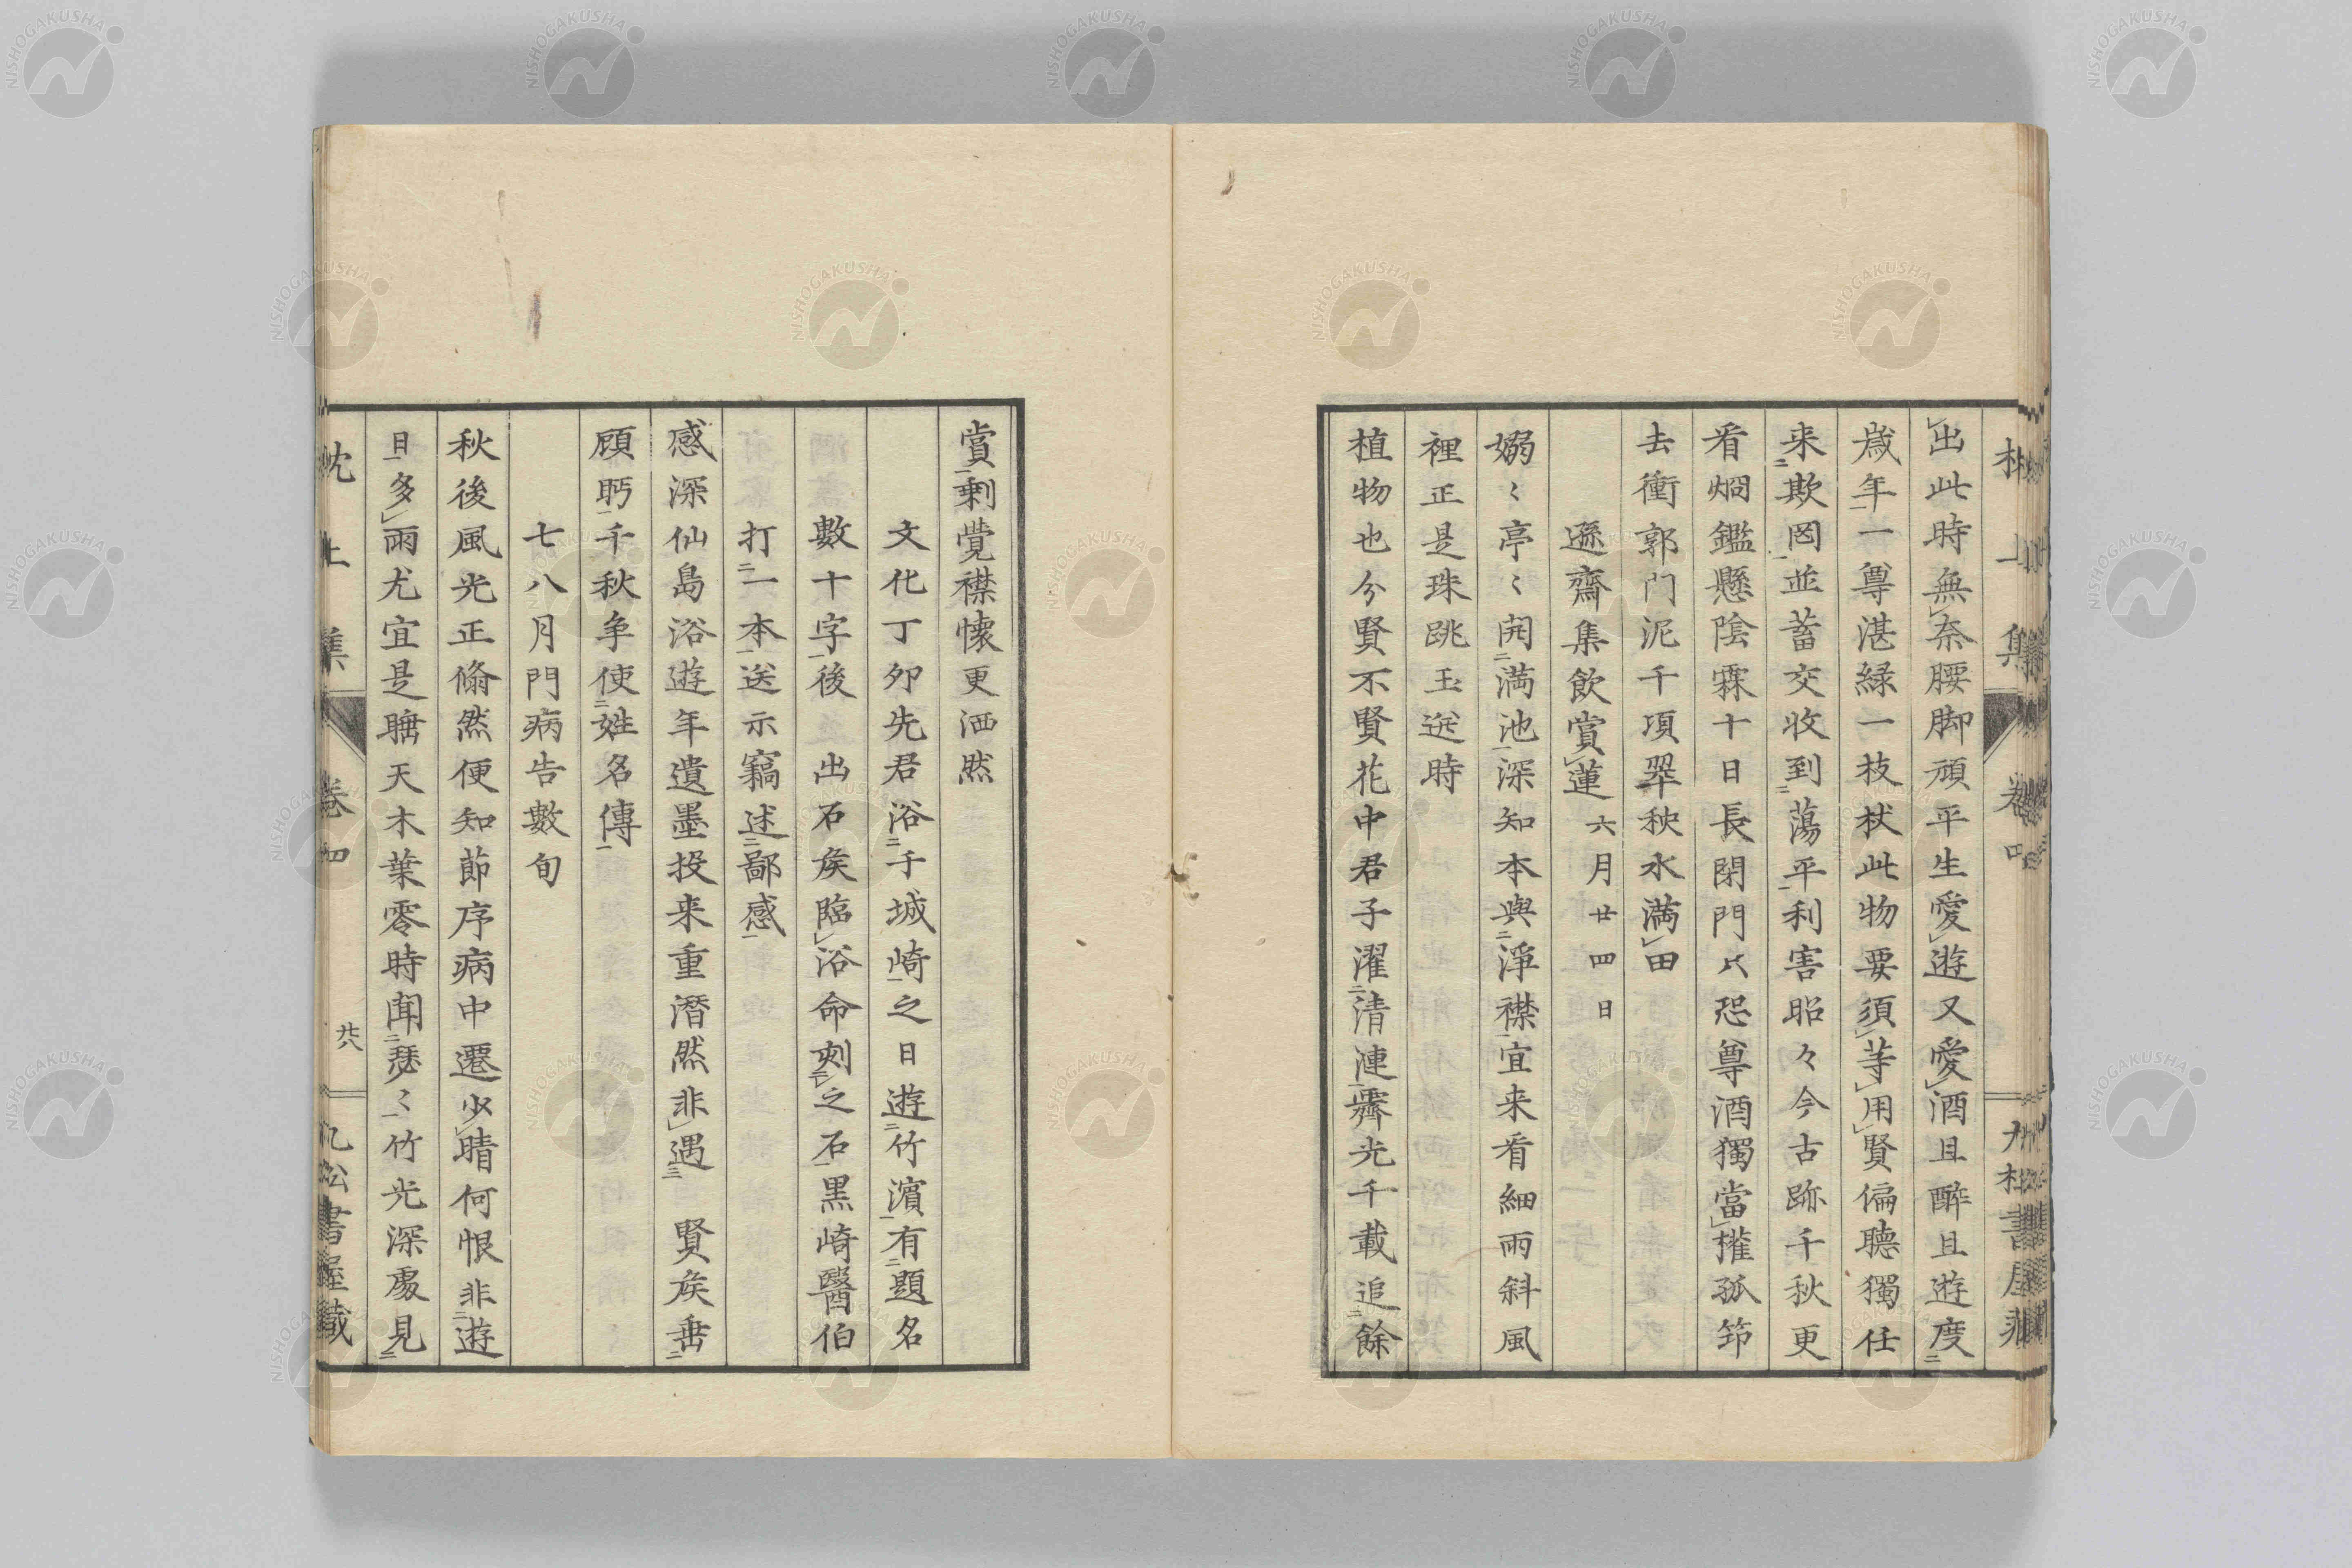 出此時無奈腰脚頑平生愛遊又愛酒且醉且遊度
歳年一尊湛緑一枝杖此物要須等用賢偏聽獨任
来欺罔並蓄交收到蕩平利害昭々今古跡千秋更
看烱鑑懸陰霖十日長閉門只恐尊酒獨當權孤筇
去衝郭門泥千項翠秧水満田
遜齋集飲賞蓮 六月廿四日
嫋〻亭〻開満池深知本與淨襟宜来看細雨斜風
裡正是珠跳玉迸時
植物也分賢不賢花中君子濯清漣霽光千載追餘
賞剰覺襟懐更洒然
文化丁卯先君浴于城崎之日遊竹濱有題名
數十字後 出石矦臨浴命刻之石黒崎醫伯
打一本送示竊述鄙感
感深仙島浴遊年遺墨投来重潸然非遇 賢矦垂
顧眄千秋争使姓名傳
七八月門病告數旬
秋後風光正翛然便知節序病中遷少晴何恨非遊
日多雨尤宜是聽天木葉零時聞瑟〻竹光深處見
枕上集 巻四 廿六 九松書屋藏